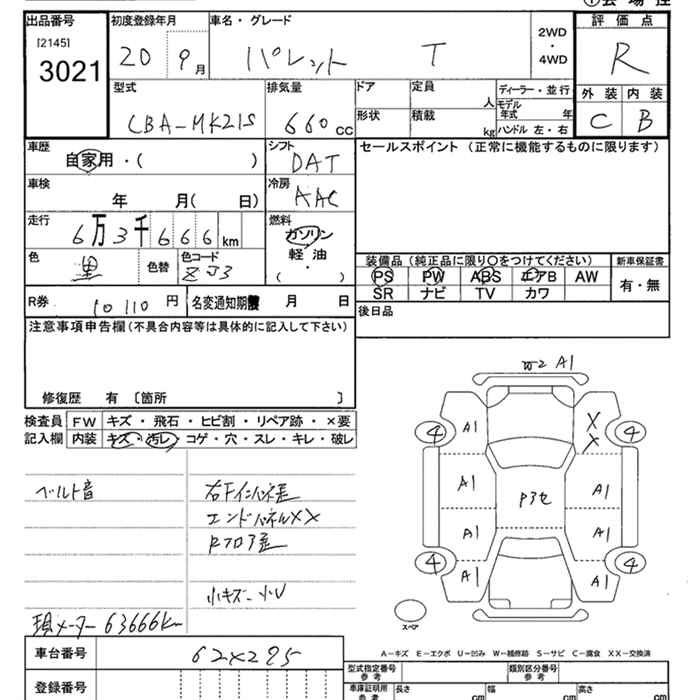 ①会場控
出品番号 初度登録年月 車名・グレード 2WD・4WD 評価点
[2145]
3021 20 9月 パレット T R
外装 内装
C B
型式 排気量 ドア 定員 人 ディーラー・並行
CBA-MK21S 660cc 形状 積載 kg モデル年式 年
ハンドル 左・右
車歴 シフト セールスポイント (正常に機能するものに限ります)
自家用・( ) DAT
車検 冷房
年 月( 日) AAC
走行 燃料
6万3千666km ガソリン
軽油
( )
色 色替 色コード
黒 ZJ3
装備品 (純正品に限り○をつけてください) 新車保証書
PS PW ABS エアB AW 有・無
SR ナビ TV カワ
R券 10110円 名変通知期限 月 日
後日品
注意事項申告欄(不具合内容等は具体的に記入して下さい)
修復歴 有 〔箇所 〕
検査員 FW キズ・飛石・ヒビ割・リペア跡・×要
記入欄 内装 キズ・汚レ・コゲ・穴・スレ・キレ・破レ
ベルト音
右Fインパネ歪
エンドパネルXX
Rフロア歪
小キズ・小U
現メーター63666km
W2 A1
A1 X X
4 4
A1 P3セ A1
A1 A1
4 4
A1 A1
スペア
A-キズ E-エクボ U-凹み W-補修跡 S-サビ C-腐食 XX-交換済
車台番号 62×295
登録番号
型式指定番号 参考 類別区分番号 参考
車庫証明用 参考 長さ cm 幅 cm 高さ cm